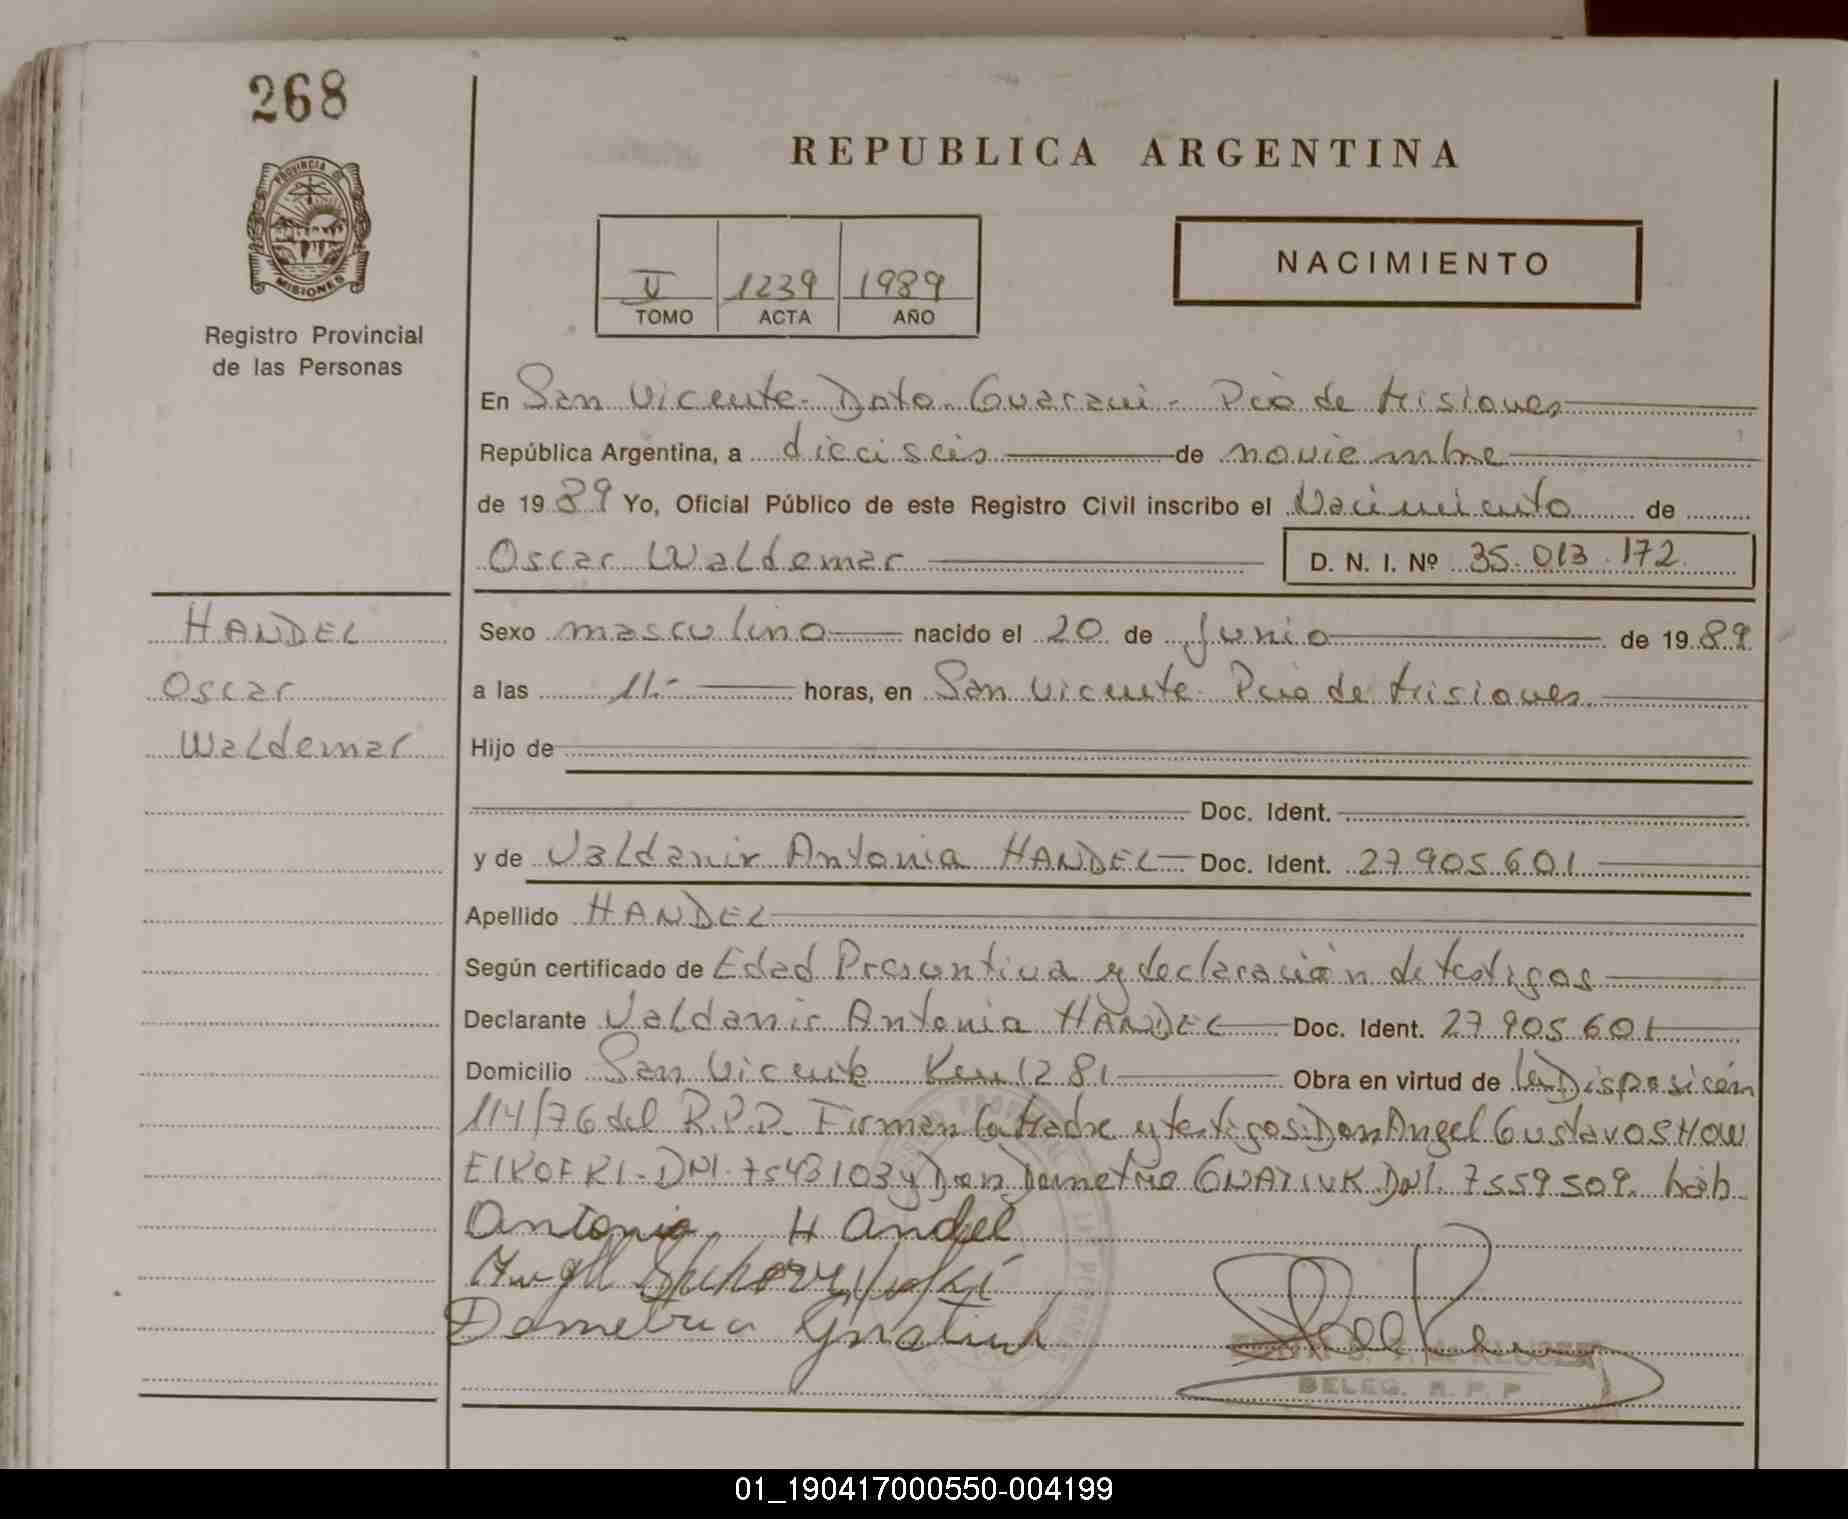 268
PROVINCIA DE
MISIONES
Registro Provincial
de las Personas
REPUBLICA ARGENTINA
V 1239 1989
TOMO ACTA AÑO
NACIMIENTO
En San Vicente - Dpto. Guarani - Pcia de Misiones
República Argentina, a dieciseis de noviembre
de 1989 Yo, Oficial Público de este Registro Civil inscribo el Nacimiento de
Oscar Waldemar D. N. I. Nº 35.013.172
HANDEL
Oscar
Waldemar
Sexo masculino nacido el 20 de Junio de 1989
a las 11.- horas, en San Vicente Pcia de Misiones
Hijo de
Doc. Ident.
y de Valdanir Antonia HANDEL Doc. Ident. 27.905.601
Apellido HANDEL
Según certificado de Edad Presuntiva y declaración de testigos
Declarante Valdanir Antonia HANDEL Doc. Ident. 27.905.601
Domicilio San Vicente Km 1281 Obra en virtud de la Disposicón
114/76 del R.P.P. Firman la Madre y testigos Don Angel Gustavo SHOW
EIKOFKI - DNI. 7543103 y Don Demetrio GNATIUK DNI. 7559509. háb.
Antonia Handel
Demetrio Gnatiuk
BELEG. R. P. P.
01_190417000550-004199